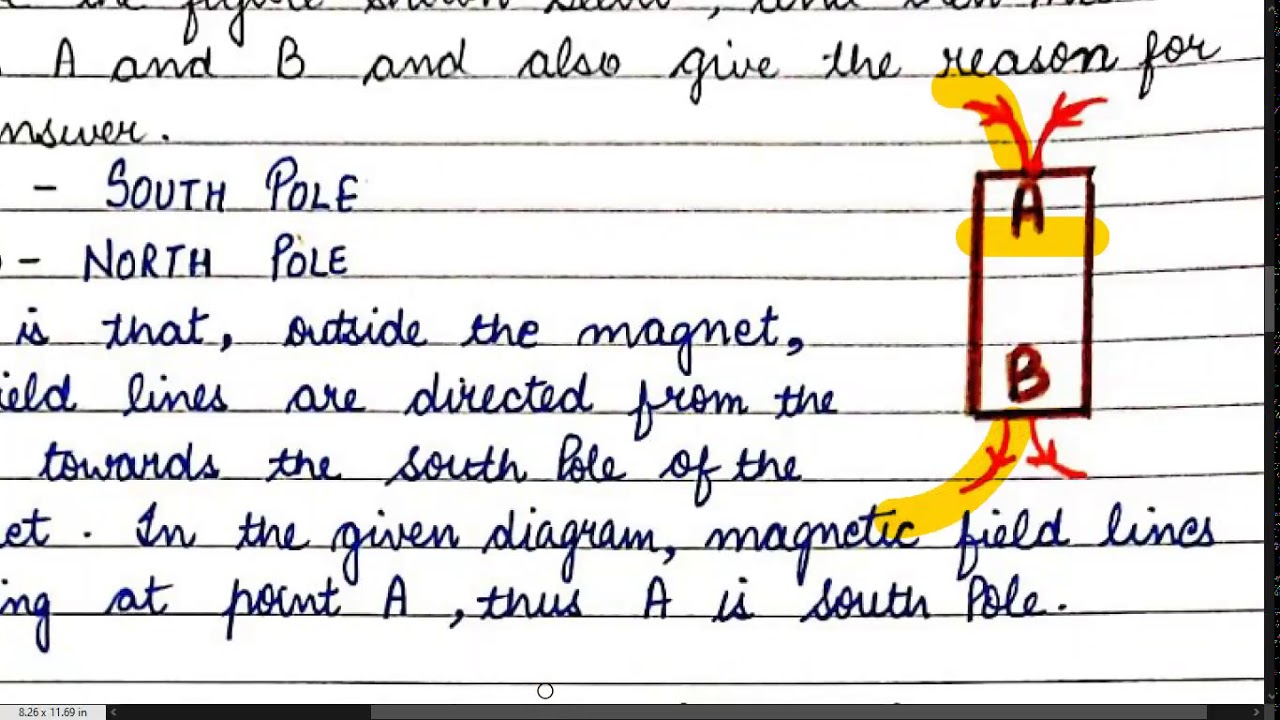 the figure shown below, and then
A and B and also give the reason for
nswer.
- SOUTH POLE
- NORTH POLE
is that, outside the magnet,
ield lines are directed from the
towards the south Pole of the
et. In the given diagram, magnetic field lines
ing at point A, thus A is south Pole.
A
B
8.26 x 11.69 in